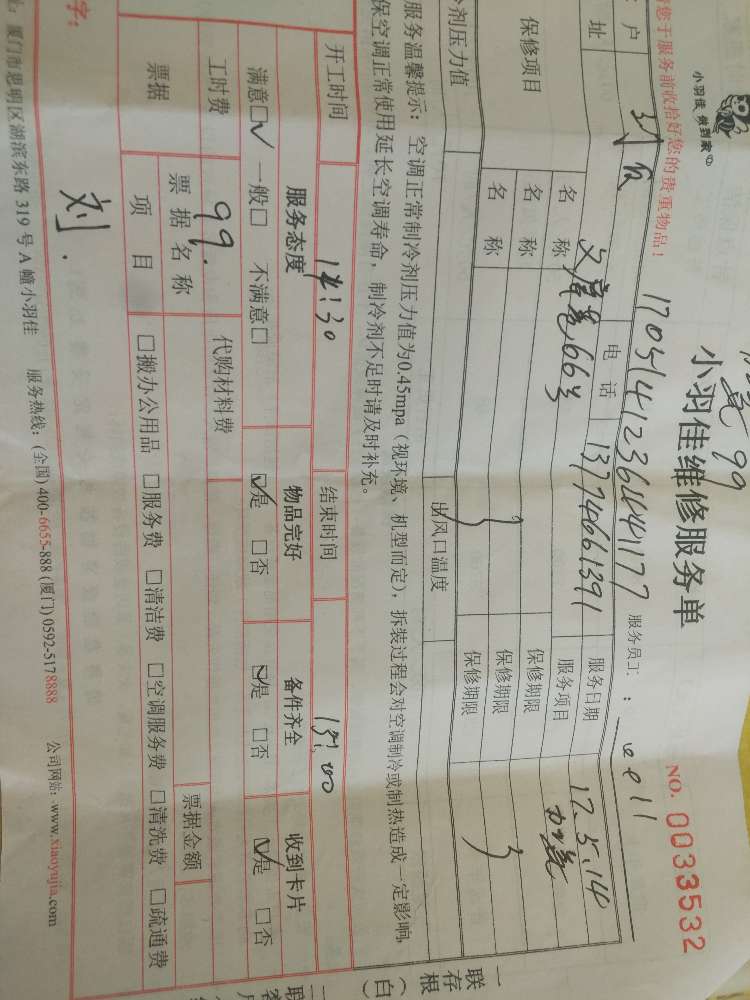 小羽佳 做到家
99
小羽佳维修服务单
NO. 0033532
您于服务前收拾好您的贵重物品！
17051412361041177
服务员工：
户
刘
电 话
13774661391
服务日期
17.5.14
址
663
服务项目
保修项目
名 称
保修期限
名 称
保修期限
名 称
保修期限
冷剂压力值
出风口温度
服务温馨提示： 空调正常制冷剂压力值为0.45mpa（视环境、机型而定），拆装过程会对空调制冷或制热造成一定影响，
保空调正常使用延长空调寿命，制冷剂不足时请及时补充。
开工时间
14:30
结束时间
15:00
服务态度
物品完好
备件齐全
收到卡片
满意☑ 一般□ 不满意□
☑是 □否
☑是 □否
☑是 □否
工时费
99.
代购材料费
票据
票 据 名 称
票据金额
项 目
□搬办公用品 □服务费 □清洁费 □空调服务费 □清洗费 □疏通费
字：
刘.
厦门市思明区湖滨东路 319 号 A 幢小羽佳 服务热线：(全国) 400-6655-888 (厦门) 0592-5178888 公司网站：www.xiaoyujia.com
一
联
存
根
（
白